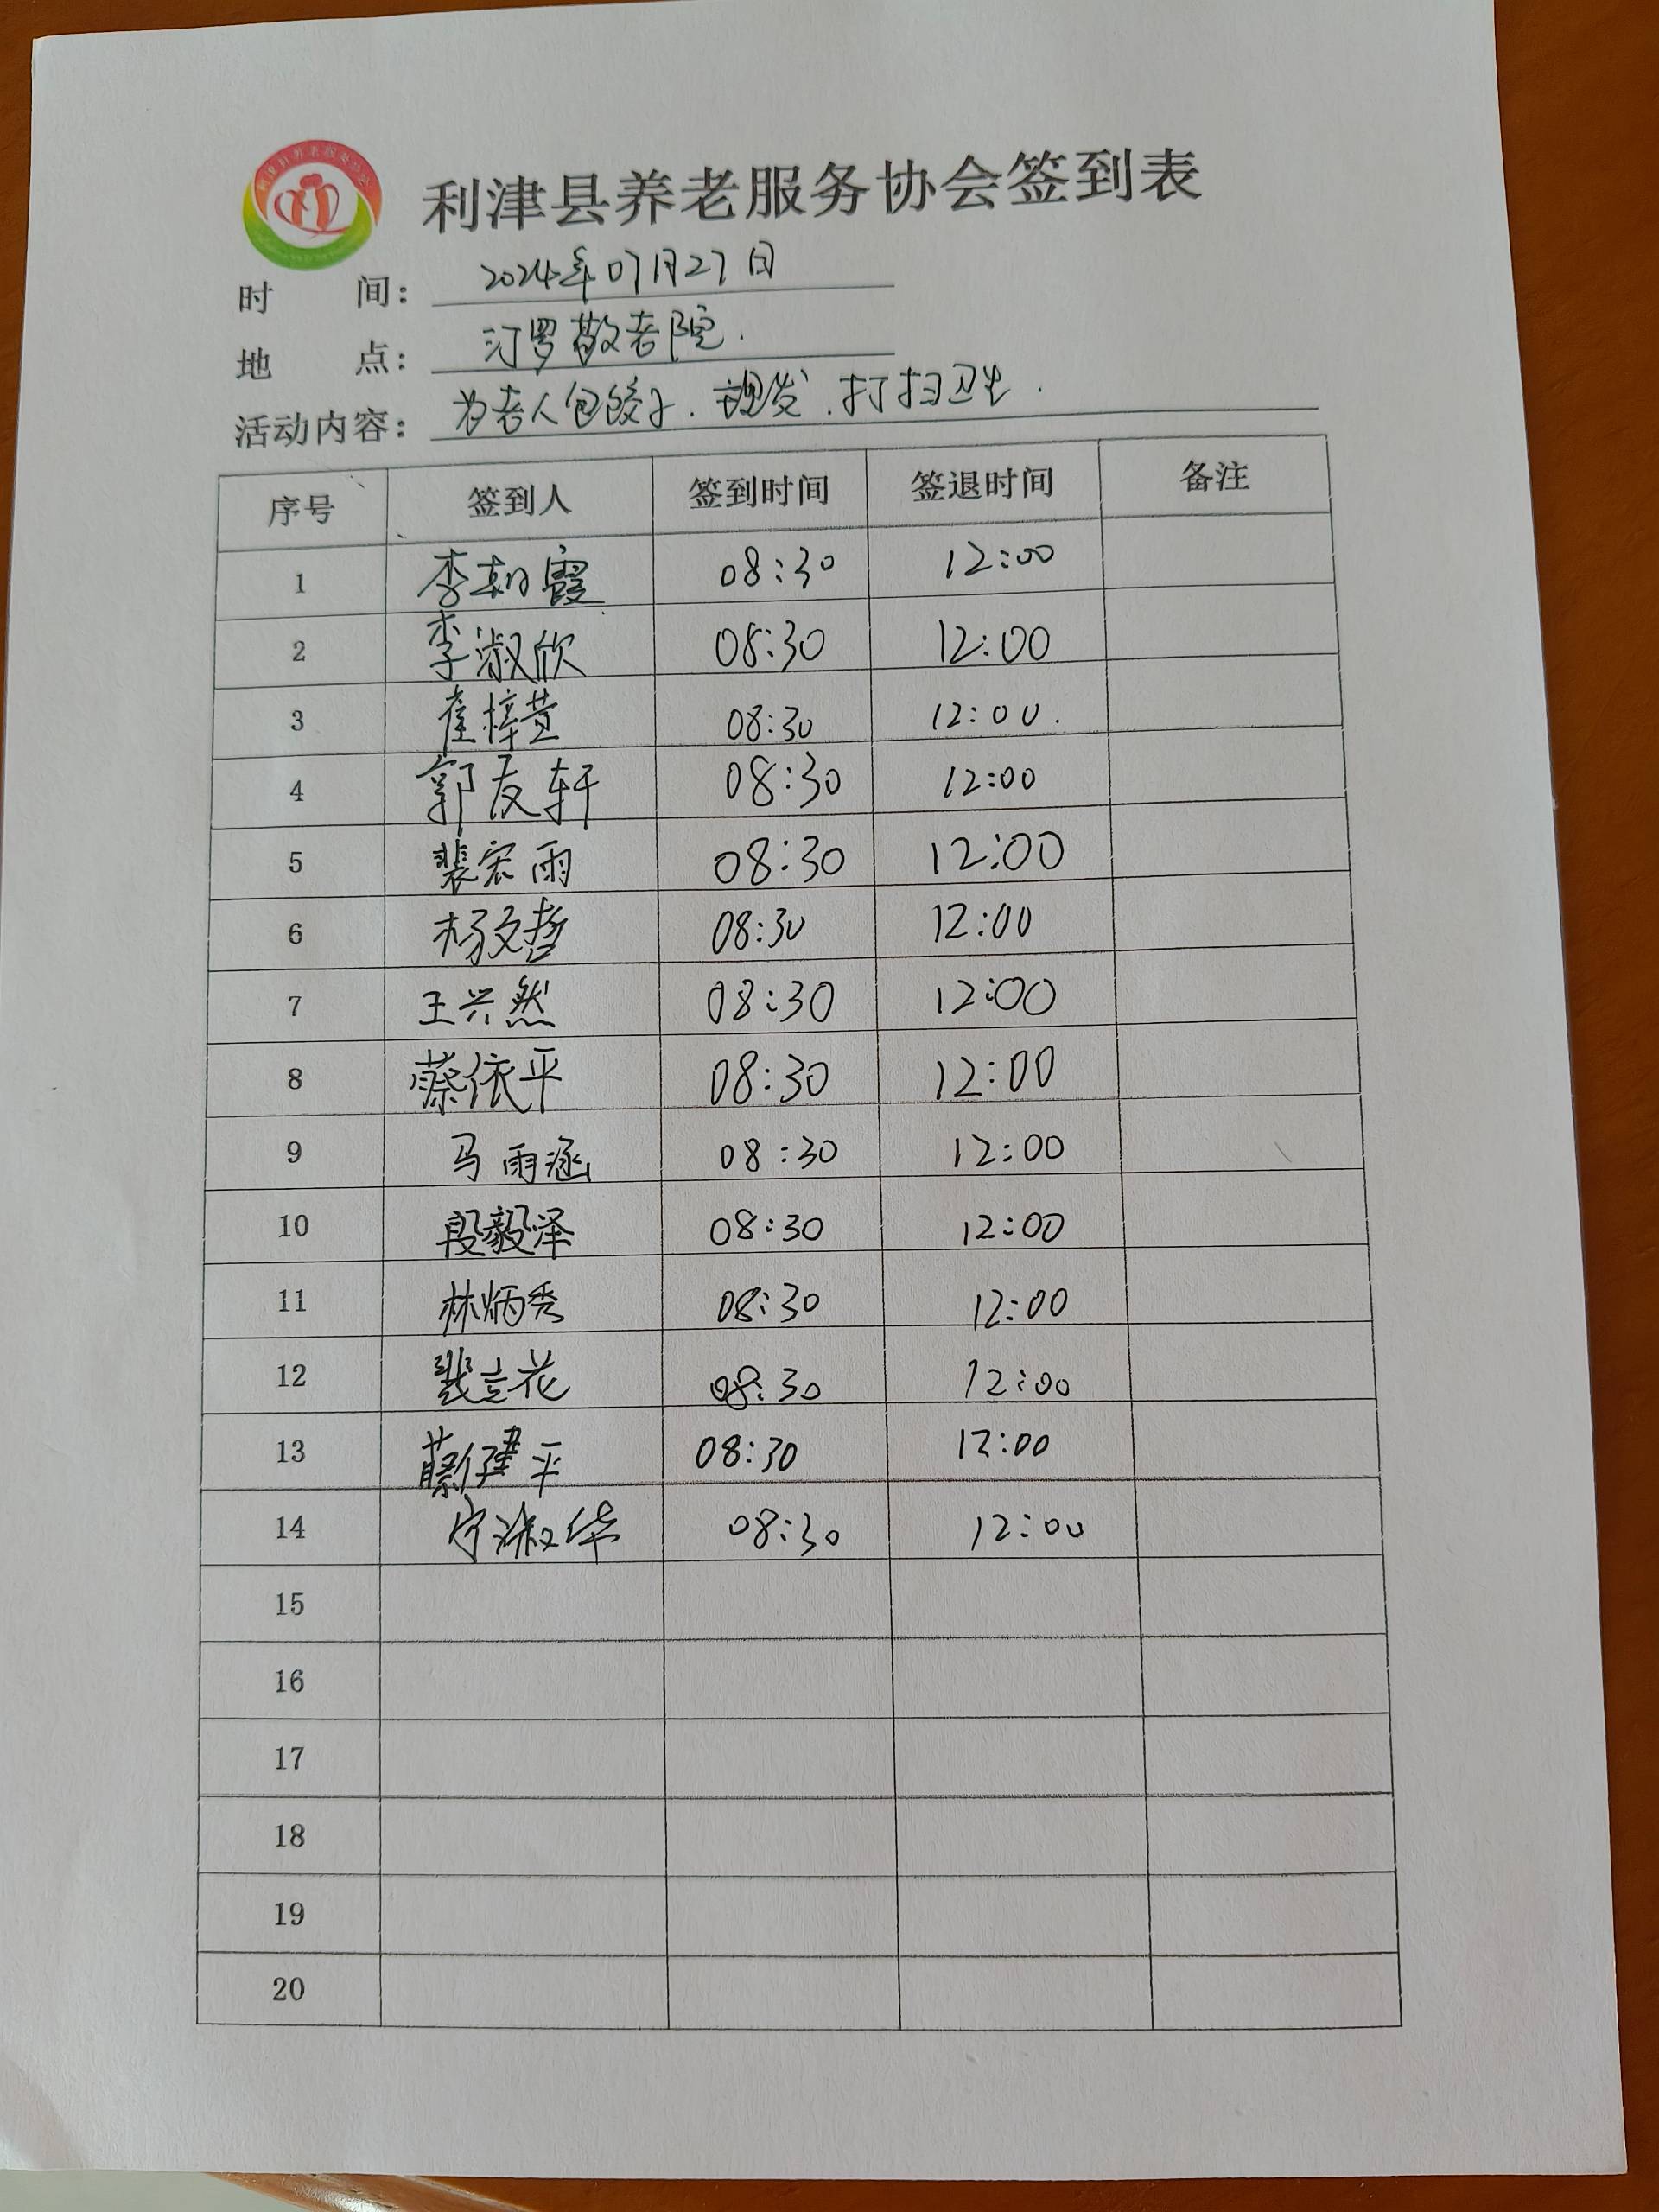 利津县养老服务协会签到表
时 间: 2024年07月27日
地 点: 汀罗敬老院.
活动内容: 为老人包饺子.理发.打扫卫生.
序号 签到人 签到时间 签退时间 备注
1 李朝霞 08:30 12:00
2 李淑欣 08:30 12:00
3 崔梓萱 08:30 12:00.
4 郭友轩 08:30 12:00
5 裴宏雨 08:30 12:00
6 杨文哲 08:30 12:00
7 王兴然 08:30 12:00
8 蔡依平 08:30 12:00
9 马雨涵 08:30 12:00
10 段毅泽 08:30 12:00
11 林炳秀 08:30 12:00
12 裴立花 08:30 12:00
13 蔡健平 08:30 12:00
14 宁淑华 08:30 12:00
15
16
17
18
19
20